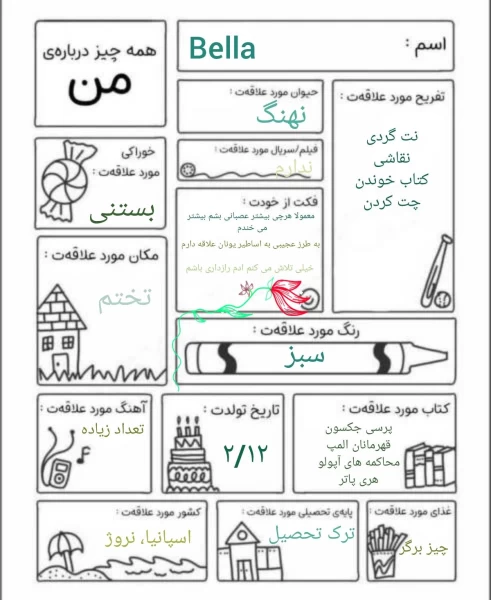 همه چیز درباره‌ی
من
اسم :
Bella
حیوان مورد علاقه‌ت :
نهنگ
تفریح مورد علاقه‌ت :
نت گردی
نقاشی
کتاب خوندن
چت کردن
خوراکی
مورد علاقه‌ت :
بستنی
فیلم/سریال مورد علاقه‌ت :
ندارم
فکت از خودت :
معمولا هرچی بیشتر عصبانی بشم بیشتر
می خندم
به طرز عجیبی به اساطیر یونان علاقه دارم
خیلی تلاش می کنم ادم رازداری باشم
مکان مورد علاقه‌ت :
تختم
رنگ مورد علاقه‌ت :
سبز
آهنگ مورد علاقه‌ت :
تعداد زیاده
تاریخ تولدت :
۲/۱۲
کتاب مورد علاقه‌ت :
پرسی جکسون
قهرمانان المپ
محاکمه های آپولو
هری پاتر
کشور مورد علاقه‌ت :
اسپانیا، نروژ
پایه‌ی تحصیلی مورد علاقه‌ت :
ترک تحصیل
غذای مورد علاقه‌ت :
چیز برگر